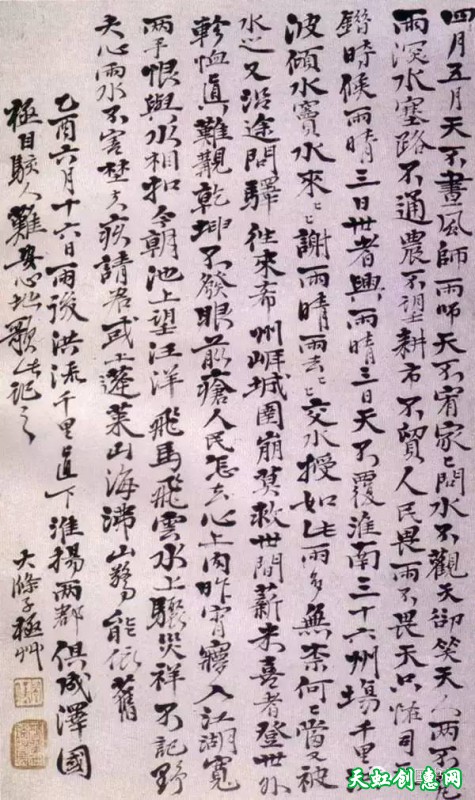 四月五月天不晝風師雨師天不宥家々問水不觀天卻笑天人兩不
雨溟水塞路不通農不望耕市不貿人民畏雨不畏天只怪司
錯時候雨晴三日世者興雨晴三日天不覆淮南三十六州場千里
波傾水竇水來々謝雨晴雨去々交水授如此雨多無柰何々嘗又被
水又沿途問驛往來希州崕城圍崩莫救世間薪米喜者登世外
軫恤真難觀乾坤不發眼前瘡人民怎去心上肉昨宵寤入江湖寬
兩手恨與水相扣今朝池上望汪洋飛馬飛雲水上驟災祥不記野
夫心雨水不害疾請君或上蓬萊山海沸山驚能依舊
乙酉六月十六日雨後洪流千里直下淮揚兩郡俱成澤國
極目駭人難安心地歌此記之
大滌子極艸
天虹创意网